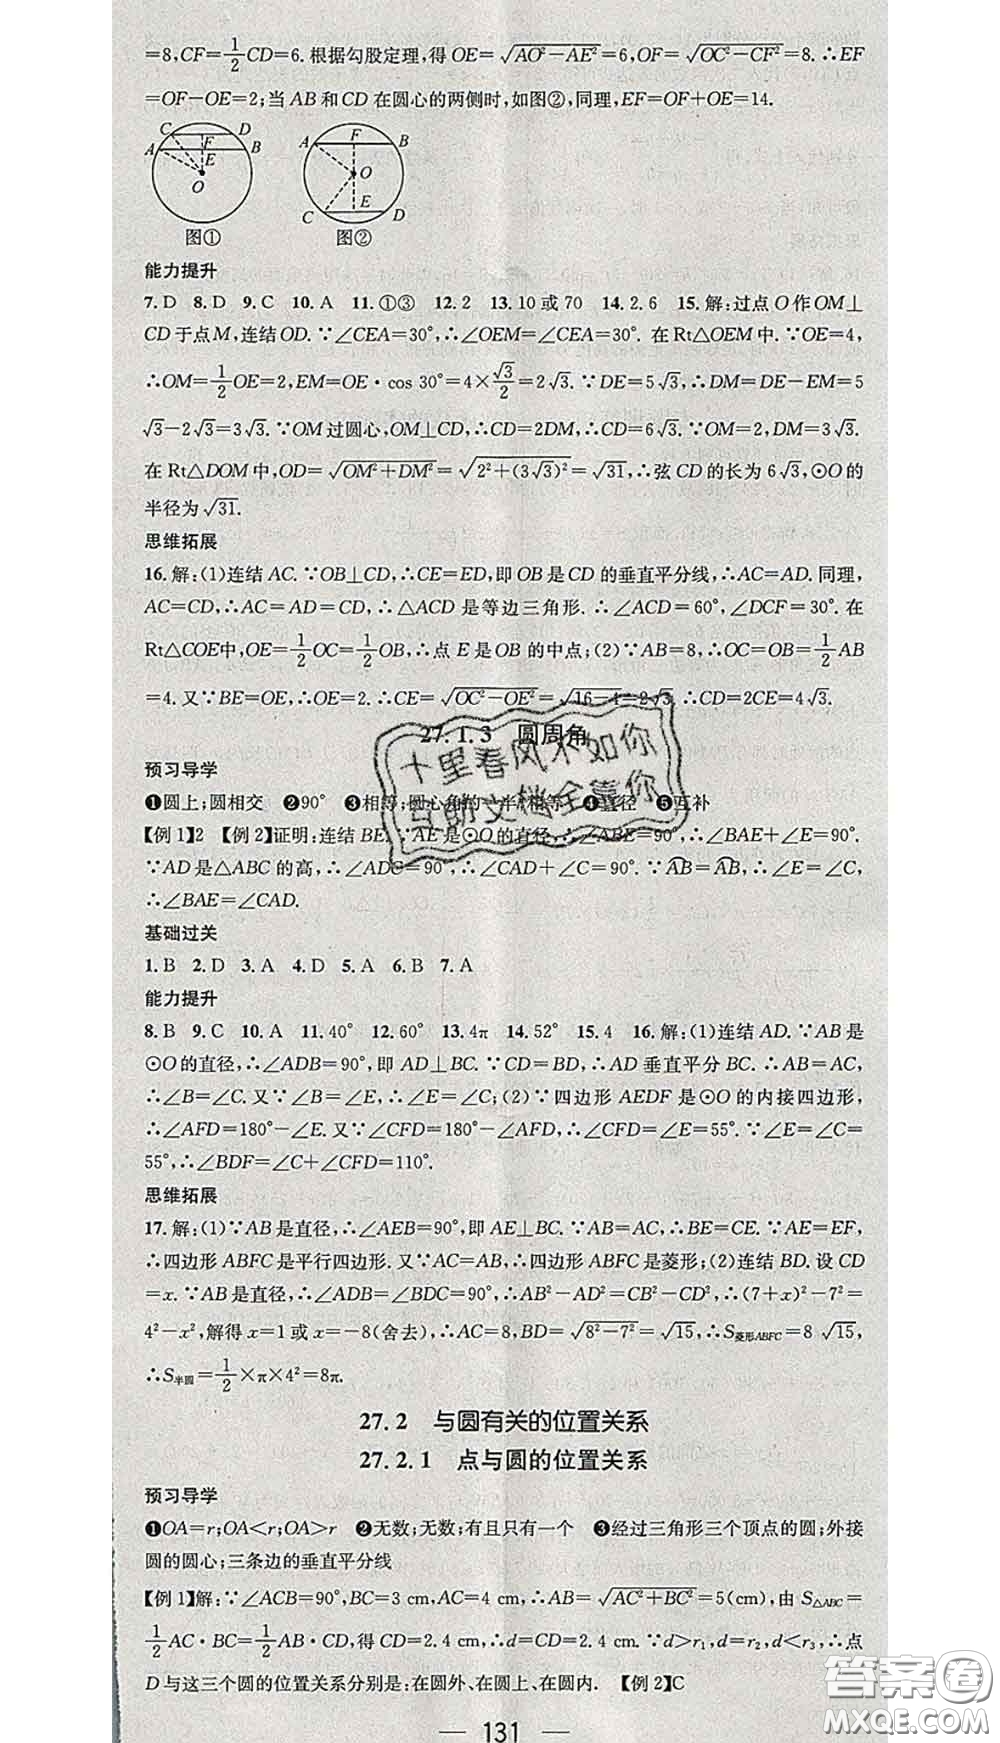 =8,CF=1/2CD=6.根据勾股定理,得OE=√(AO²-AE²)=6,OF=√(OC²-CF²)=8.∴EF
=OF-OE=2;当AB和CD在圆心的两侧时,如图②,同理,EF=OF+OE=14.
C D F A B E O
A F B O C E D
图① 图②
能力提升
7.D 8.D 9.C 10.A 11.①③ 12.2 13.10或70 14.2,6 15.解:过点O作OM⊥
CD于点M,连结OD.∵∠CEA=30°,∴∠OEM=∠CEA=30°.在Rt△OEM中.∵OE=4,
∴OM=1/2OE=2,EM=OE·cos 30°=4×√3/2=2√3.∵DE=5√3,∴DM=DE-EM=5
√3-2√3=3√3.∵OM过圆心,OM⊥CD,∴CD=2DM,∴CD=6√3.∵OM=2,DM=3√3.
在Rt△DOM中,OD=√(OM²+DM²)=√(2²+(3√3)²)=√31,∴弦CD的长为6√3,⊙O的
半径为√31.
思维拓展
16.解:(1)连结AC.∵OB⊥CD,∴CE=ED,即OB是CD的垂直平分线,∴AC=AD.同理,
AC=CD,∴AC=AD=CD,∴△ACD是等边三角形.∴∠ACD=60°,∠DCF=30°.在
Rt△COE中,OE=1/2OC=1/2OB,∴点E是OB的中点;(2)∵AB=8,∴OC=OB=1/2AB
=4.又∵BE=OE,∴OE=2.∴CE=√(OC²-OE²)=√(16-4)=2√3.∴CD=2CE=4√3.
27.1.3 圆周角
十里春风不如你
互助文档全靠你
预习导学
❶圆上;圆相交 ❷90° ❸相等;圆心角的一半;相等 ❹直径 ❺互补
【例1】2 【例2】证明:连结BE.∵AE是⊙O的直径,∴∠ABE=90°,∴∠BAE+∠E=90°.
∵AD是△ABC的高,∴∠ADC=90°,∴∠CAD+∠C=90°.∵AB=AB,∴∠E=∠C,
∴∠BAE=∠CAD.
基础过关
1.B 2.D 3.A 4.D 5.A 6.B 7.A
能力提升
8.B 9.C 10.A 11.40° 12.60° 13.4π 14.52° 15.4 16.解:(1)连结AD.∵AB是
⊙O的直径,∴∠ADB=90°,即AD⊥BC.∵CD=BD,∴AD垂直平分BC.∴AB=AC,
∴∠B=∠C.又∵∠B=∠E,∴∠E=∠C;(2)∵四边形AEDF是⊙O的内接四边形,
∴∠AFD=180°-∠E.又∵∠CFD=180°-∠AFD,∴∠CFD=∠E=55°.∵∠E=∠C=
55°,∴∠BDF=∠C+∠CFD=110°.
思维拓展
17.解:(1)∵AB是直径,∴∠AEB=90°,即AE⊥BC.∵AB=AC,∴BE=CE.∵AE=EF,
∴四边形ABFC是平行四边形.又∵AC=AB,∴四边形ABFC是菱形;(2)连结BD.设CD
=x.∵AB是直径,∴∠ADB=∠BDC=90°,∴AB²-AD²=CB²-CD²,∴(7+x)²-7²=
4²-x²,解得x=1或x=-8(舍去),∴AC=8,BD=√(8²-7²)=√15,∴S菱形ABFC=8√15,
∴S半圆=1/2×π×4²=8π.
27.2 与圆有关的位置关系
27.2.1 点与圆的位置关系
预习导学
❶OA=r;OA<r;OA>r ❷无数;无数;有且只有一个 ❸经过三角形三个顶点的圆;外接
圆的圆心;三条边的垂直平分线
【例1】解:∵∠ACB=90°,BC=3 cm,AC=4 cm,∴AB=√(AC²+BC²)=5(cm),由S△ABC=
1/2AC·BC=1/2AB·CD,得CD=2.4 cm,∴d=CD=2.4 cm.∵d>r₁,d=r₂,d<r₃,∴点
D与这三个圆的位置关系分别是:在圆外、在圆上、在圆内. 【例2】C
— 131 —
答案圈
MXQE.COM